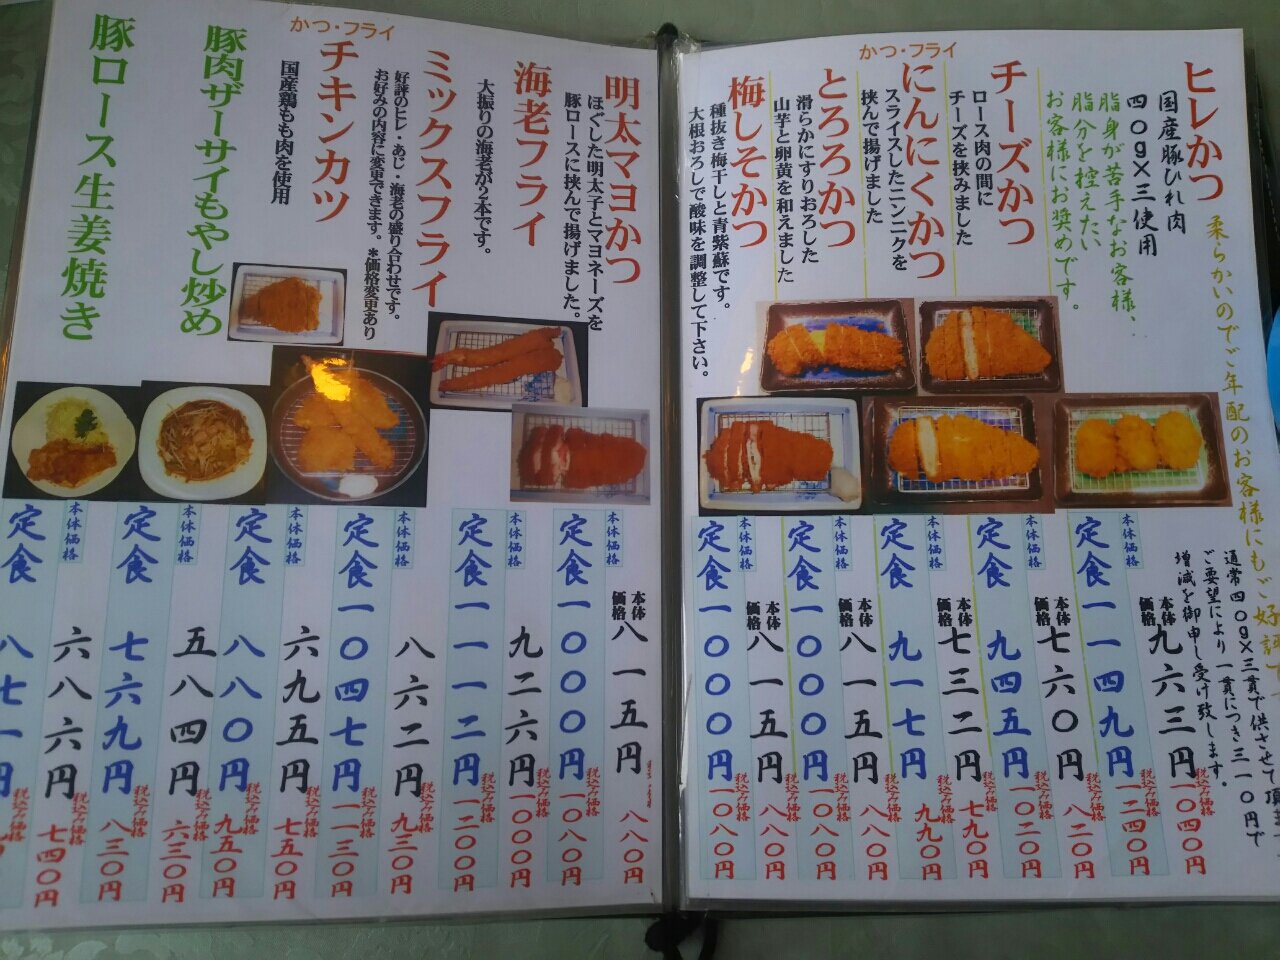 かつ・フライ
ヒレかつ
国産豚ひれ肉
四〇g×三使用
脂身が苦手なお客様、
脂分を控えたい
お客様にお奨めです。
柔らかいのでご年配のお客様にもご好評
通常四〇g×三貫で供させて頂
ご要望により一貫につき三一〇円で
増減を御申し受け致します。
チーズかつ
ロース肉の間に
チーズを挟みました
にんにくかつ
スライスしたニンニクを
挟んで揚げました
とろろかつ
滑らかにすりおろした
山芋と卵黄を和えました
梅しそかつ
種抜き梅干しと青紫蘇です。
大根おろしで酸味を調整して下さい。
本体価格 九六三円 税込み価格 一〇四〇円
定食 本体価格 一一四九円 税込み価格 一二四〇円
本体価格 七六〇円 税込み価格 八二〇円
定食 本体価格 九四五円 税込み価格 一〇二〇円
本体価格 七三二円 税込み価格 七九〇円
定食 本体価格 九一七円 税込み価格 九九〇円
本体価格 八一五円 税込み価格 八八〇円
定食 本体価格 一〇〇〇円 税込み価格 一〇八〇円
本体価格 八一五円 税込み価格 八八〇円
定食 本体価格 一〇〇〇円 税込み価格 一〇八〇円
かつ・フライ
明太マヨかつ
ほぐした明太子とマヨネーズを
豚ロースに挟んで揚げました。
海老フライ
大振りの海老が2本です。
ミックスフライ
好評のヒレ・あじ・海老の盛り合わせです。
お好みの内容に変更できます。*価格変更あり
チキンカツ
国産鶏もも肉を使用
豚肉ザーサイもやし炒め
豚ロース生姜焼き
本体価格 八一五円 税込み価格 八八〇円
定食 本体価格 一〇〇〇円 税込み価格 一〇八〇円
九二六円 税込み価格 一〇〇〇円
定食 本体価格 一一一二円 税込み価格 一二〇〇円
八六二円 税込み価格 九三〇円
定食 本体価格 一〇四七円 税込み価格 一一三〇円
六九五円 税込み価格 七五〇円
定食 本体価格 八八〇円 税込み価格 九五〇円
五八四円 税込み価格 六三〇円
定食 本体価格 七六九円 税込み価格 八三〇円
六八六円 税込み価格 七四〇円
定食 本体価格 八七一円 税込み価格